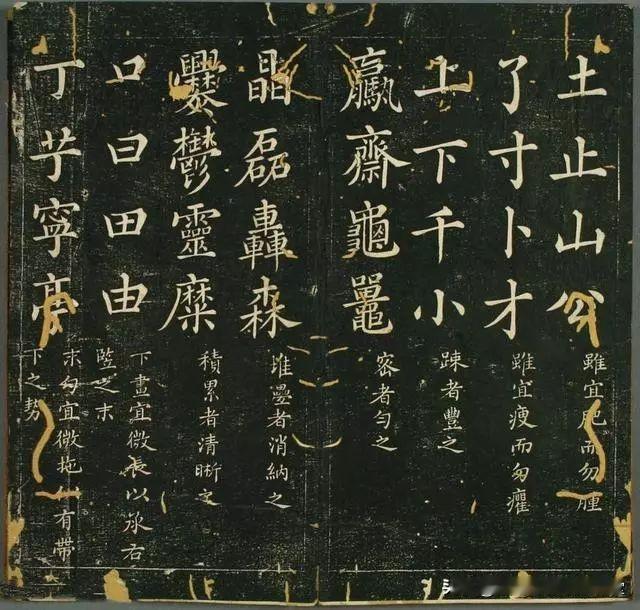 土止山公 雖宜肥而勿腫
了寸卜才 雖宜瘦而勿癯
上下千小 踈者豐之
贏齋龜鼉 密者勻之
晶磊轟森 堆疊者消納之
爨鬱靈糜 積累者清晰之
口曰田由 下畫宜微長以承右
豎之末
丁芓寧亭 末勾宜微拖有帶
下之勢